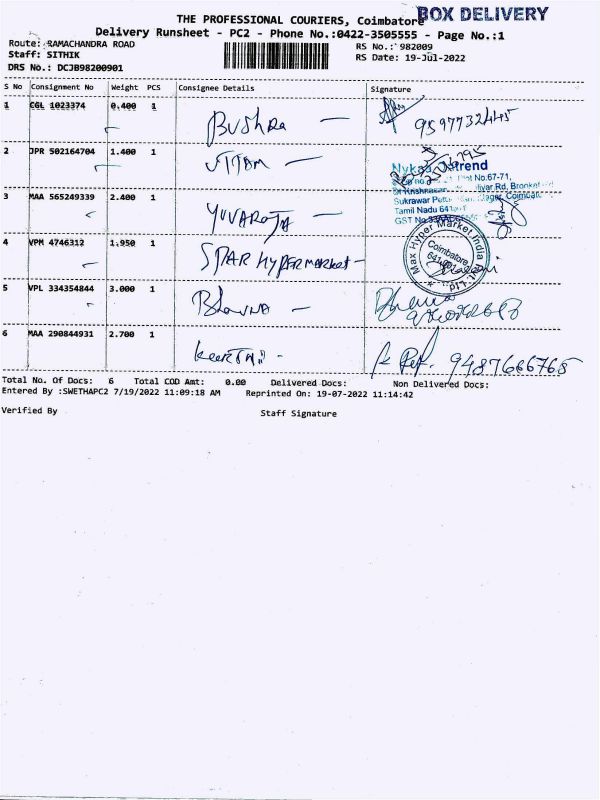 THE PROFESSIONAL COURIERS, Coimbatore
BOX DELIVERY
Delivery Runsheet - PC2 - Phone No.:0422-3505555 - Page No.:1
Route: RAMACHANDRA ROAD
RS No.: 982009
Staff: SITHIK
RS Date: 19-Jul-2022
DRS No.: DCJB98200901
S No Consignment No Weight PCS Consignee Details Signature
1 CGL 1023374 0.400 1 Bushra 9597732445
2 JPR 502164704 1.400 1
Nykaa trend
No.67-71,
3 MAA 565249339 2.400 1 YUVARAJA
Tamil Nadu
GST No
4 VPM 4746312 1.950 1 STAR HYPERMARKET
Max Hyper Market India Pvt. Ltd.
Coimbatore
5 VPL 334354844 3.000 1 Bhavna
6 MAA 290844931 2.700 1 9487666765
Total No. Of Docs: 6 Total COD Amt: 0.00 Delivered Docs: Non Delivered Docs:
Entered By :SWETHAPC2 7/19/2022 11:09:18 AM Reprinted On: 19-07-2022 11:14:42
Verified By Staff Signature